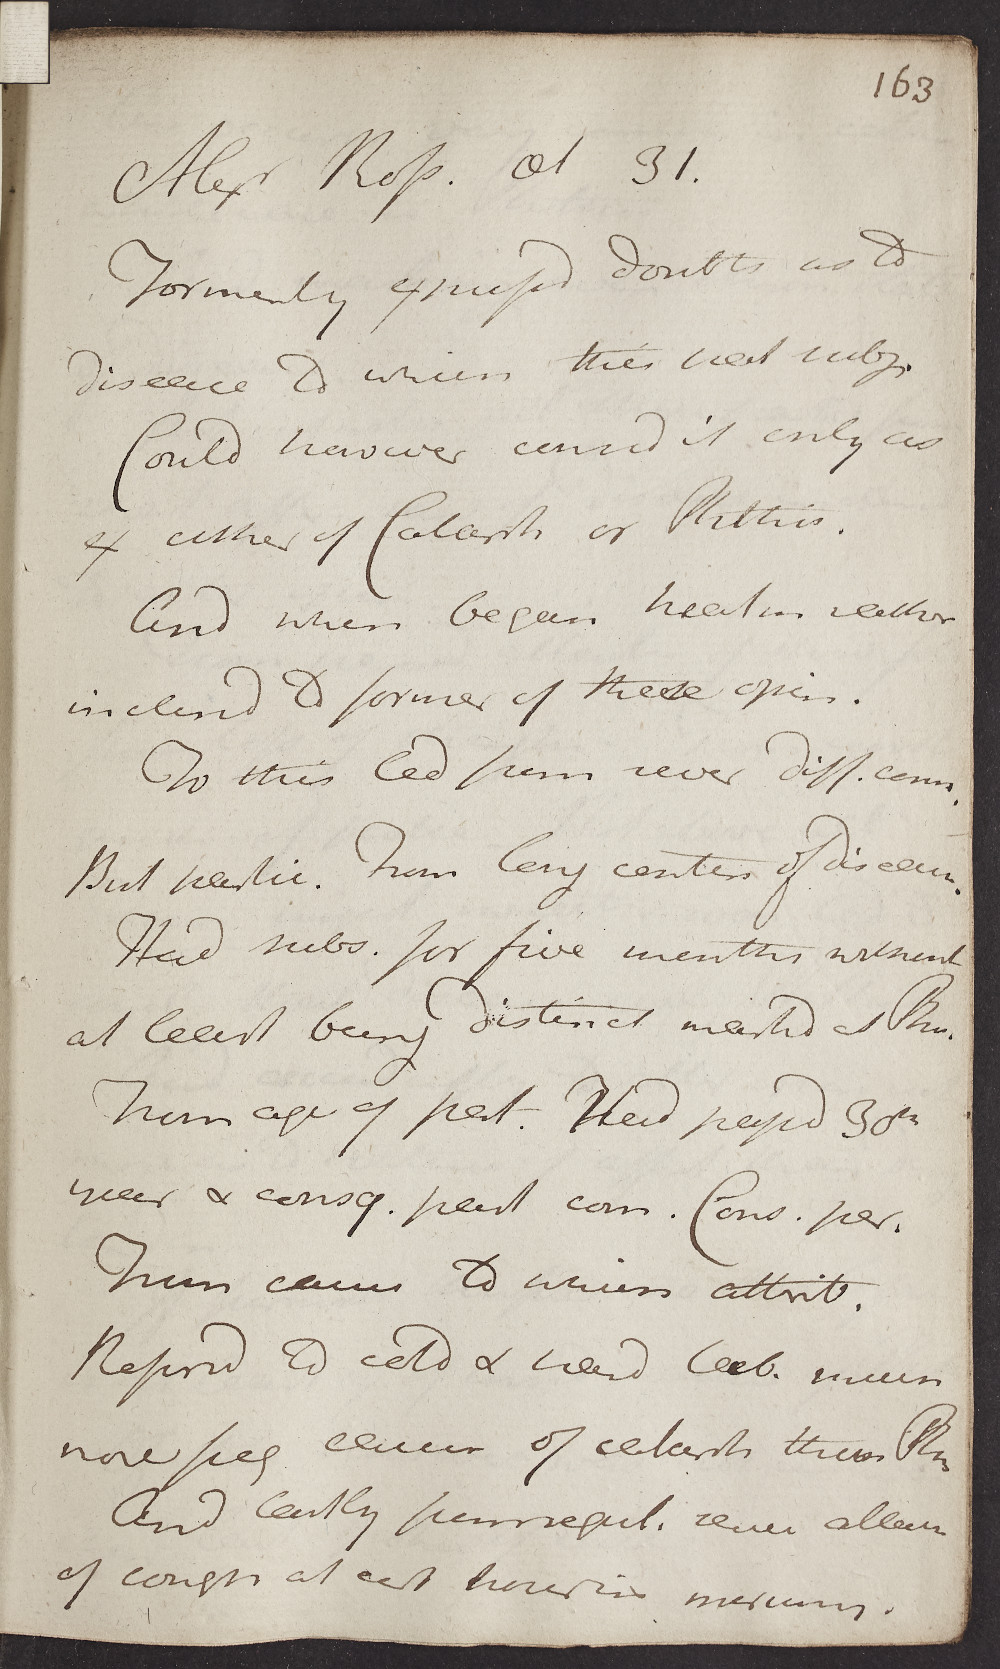 163
Alexr Ross. Æt 31.
Formerly expressd doubts as to
disease to which this pat subj.
Could however consid it only as
ex either of Catarrh or Phthis.
And when began treatm rather
inclind to former of these opin.
To this led from sever diff. conn.
But partic. From long contin of disease.
Had subs. for five months without
at least being distinct markd as Phth.
From age of pat. Had passd 30th
year & consq. past com. Cons. per.
From cause to which attrib.
Referrd to cold & hard lab. much
more freq cause of catarrh than Phth
And lastly from regul. sever attack
of cough at cert hour in morning.